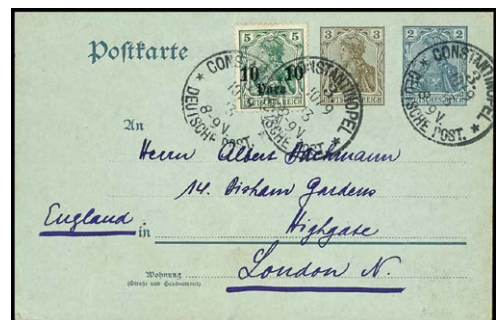 Postkarte
5 5
10 10
Para
3 3
2 2
CONSTANTINOPEL
DEUTSCHE POST.
8-9V.
CONSTANTINOPEL
DEUTSCHE POST.
8-9V.
CONSTANTINOPEL
DEUTSCHE POST.
8-9V.
An
Herrn Albert Bachmann
14. Bisham Gardens
England in Highgate
Wohnung
(Straße und Hausnummer)
London N.